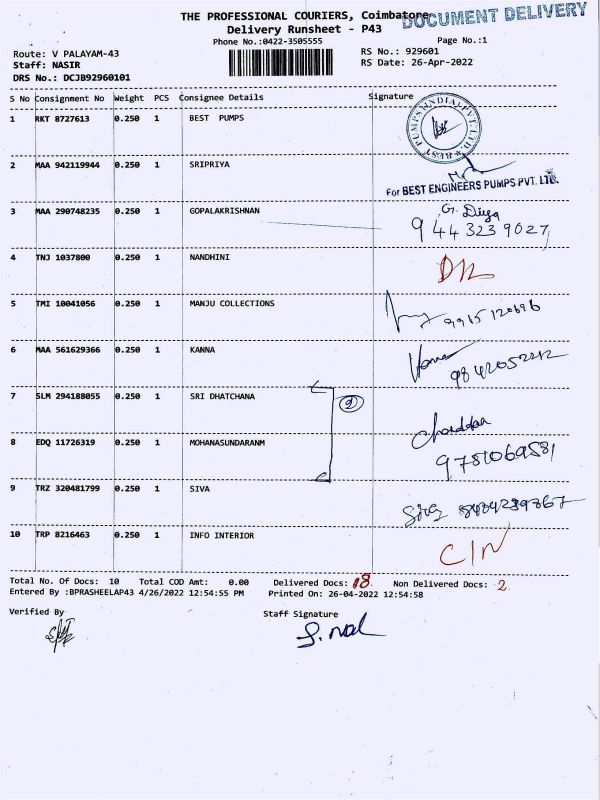 THE PROFESSIONAL COURIERS, Coimbatore
DOCUMENT DELIVERY
Delivery Runsheet - P43
Phone No.:0422-3505555
Page No.:1
Route: V PALAYAM-43
RS No.: 929601
Staff: NASIR
RS Date: 26-Apr-2022
DRS No.: DCJB92960101
S No Consignment No Weight PCS Consignee Details Signature
1 RKT 8727613 0.250 1 BEST PUMPS
BEST PUMPS (INDIA) PVT. LTD.
2 MAA 942119944 0.250 1 SRIPRIYA
For BEST ENGINEERS PUMPS PVT. LTD.
3 MAA 290748235 0.250 1 GOPALAKRISHNAN
G. Divya
9443239027
4 TNJ 1037800 0.250 1 NANDHINI
5 TMI 10041056 0.250 1 MANJU COLLECTIONS
9915120696
6 MAA 561629366 0.250 1 KANNA
9842052212
7 SLM 294188055 0.250 1 SRI DHATCHANA
2
8 EDQ 11726319 0.250 1 MOHANASUNDARANM
9781069581
9 TRZ 320481799 0.250 1 SIVA
10 TRP 8216463 0.250 1 INFO INTERIOR
C/N
Total No. Of Docs: 10 Total COD Amt: 0.00 Delivered Docs: 8 Non Delivered Docs: 2
Entered By :BPRASHEELAP43 4/26/2022 12:54:55 PM Printed On: 26-04-2022 12:54:58
Verified By
Staff Signature